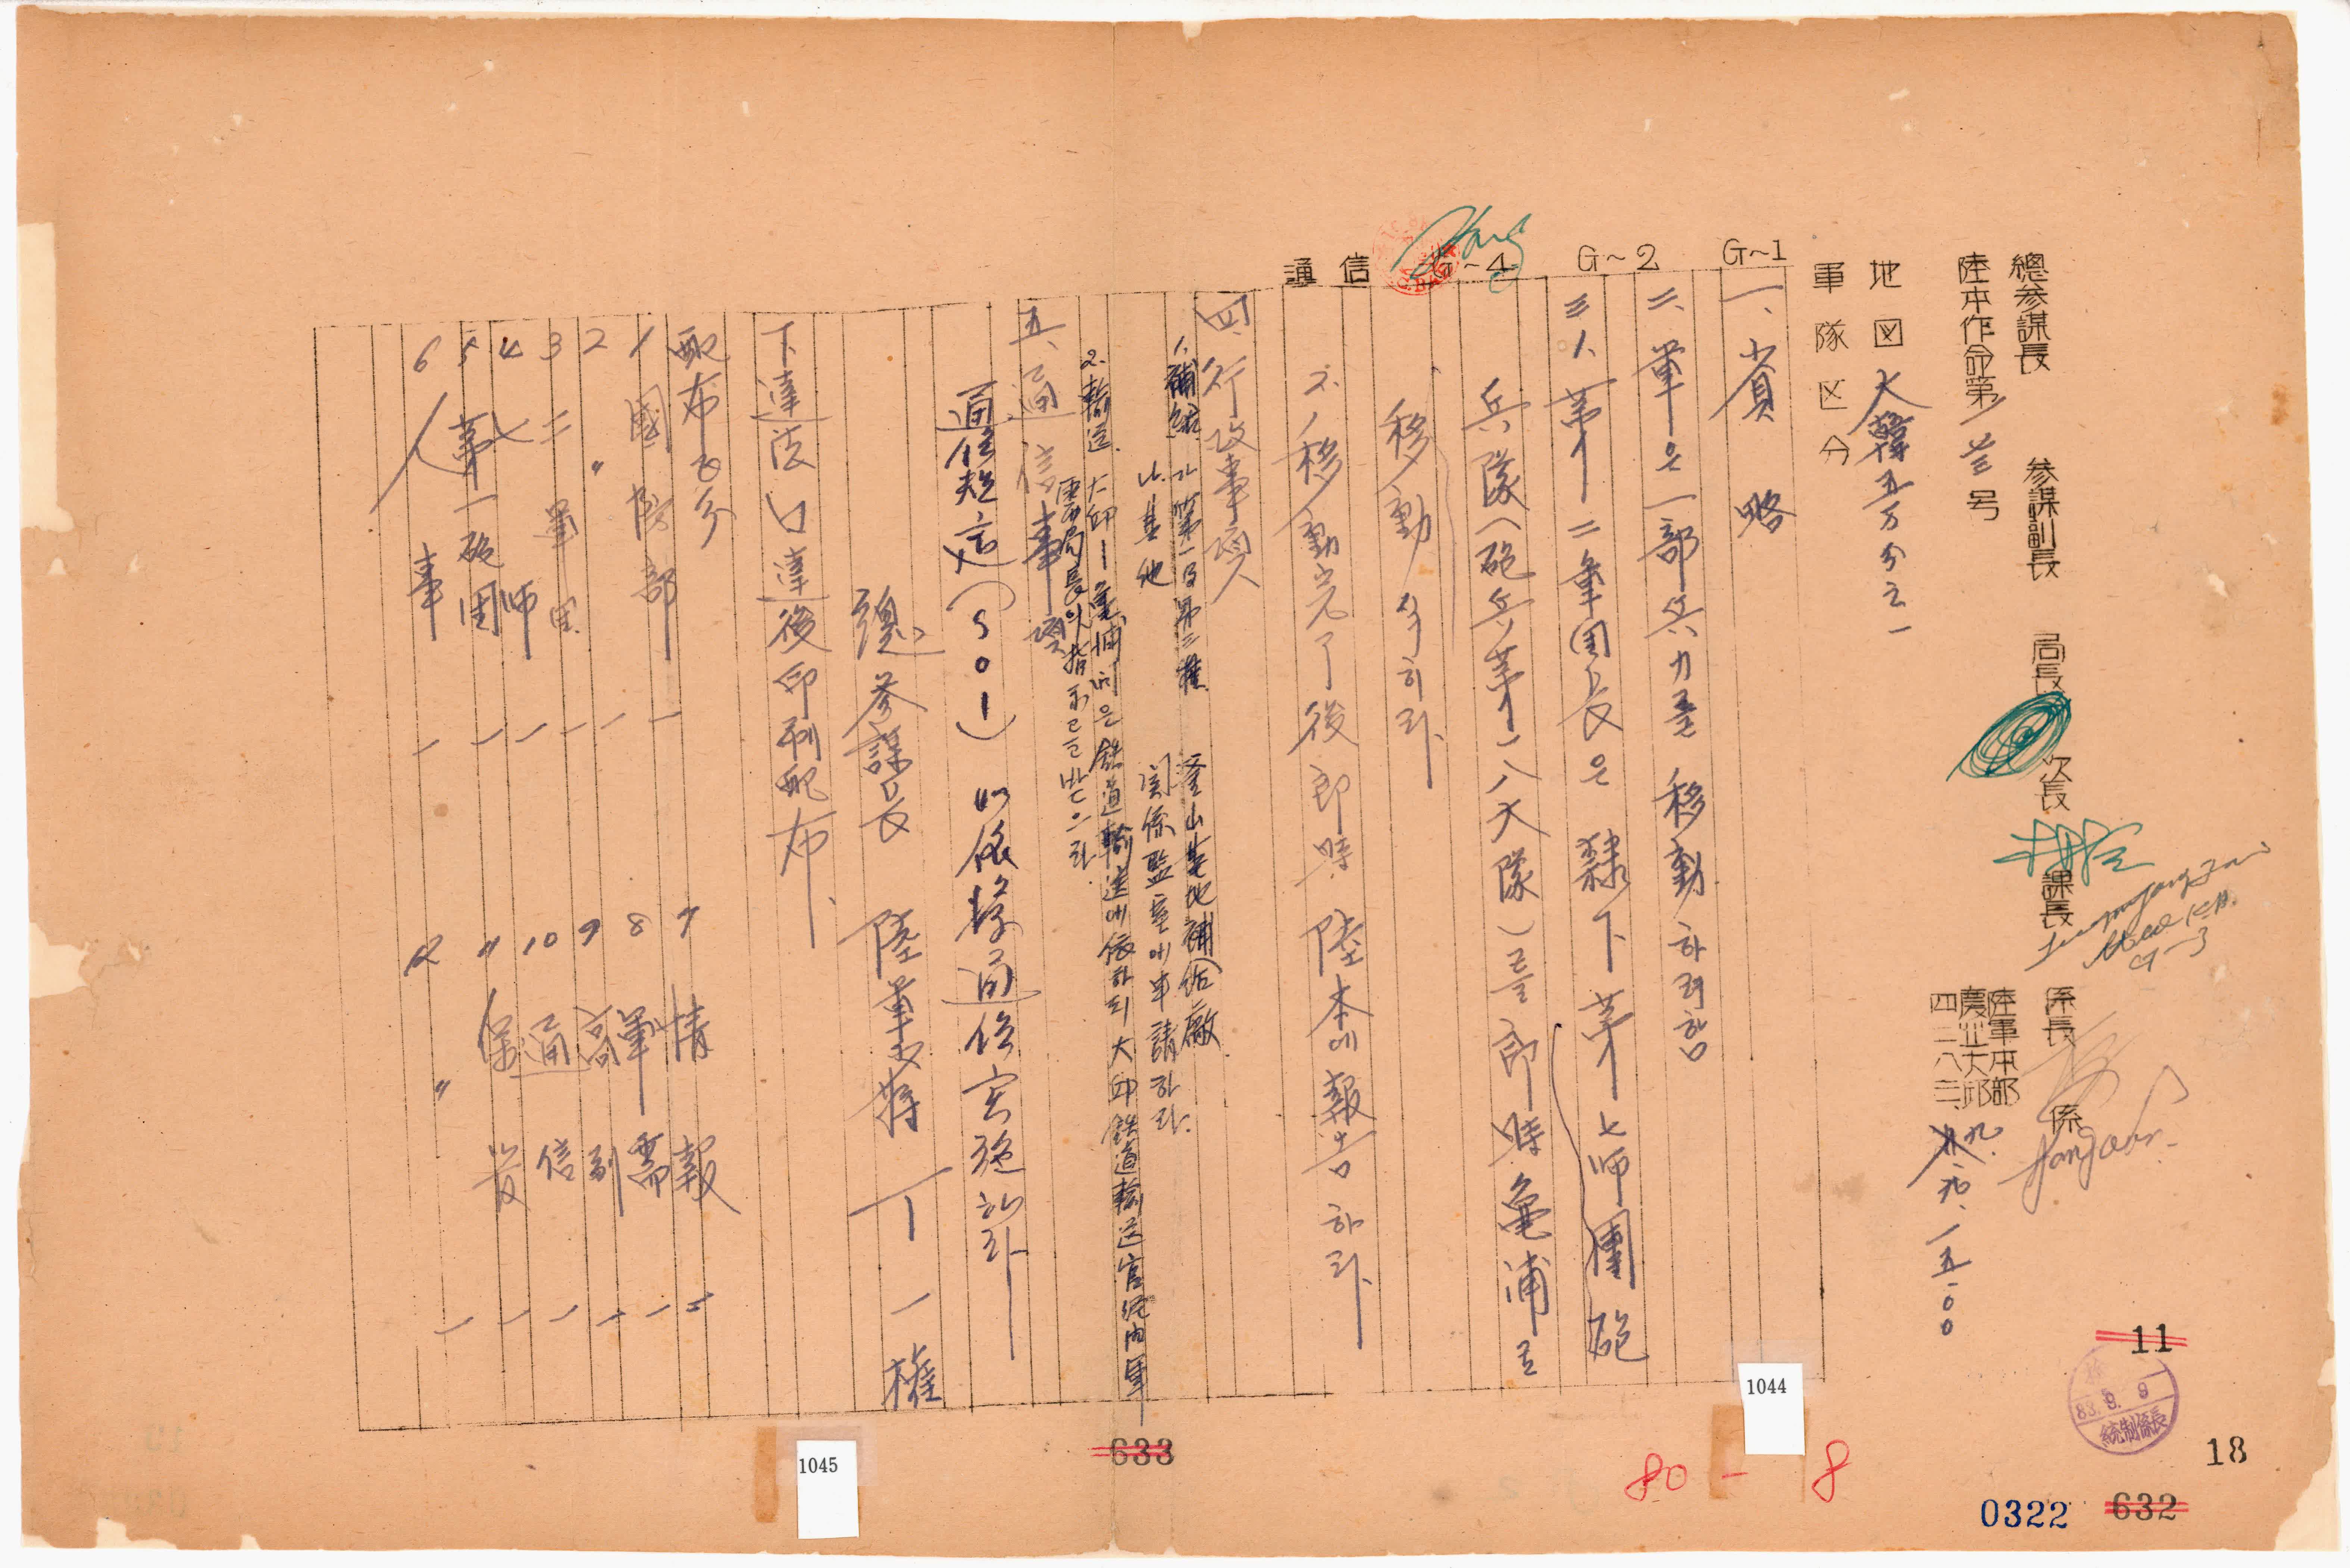 總參謀長 參謀副長 局長 次長 課長 係長 係
陸本作命第 号
陸軍本部
慶北大邱
四二八三、九、一五〇〇
地図 大韓五万分之一
軍隊区分
G~1
G~2
G~4
通信
一、省略
二、軍은 一部兵力을 移動하려함
三、1、第二軍団長은 隸下 第七師團 砲
兵隊(砲兵第一八大隊)를 即時 龜浦로
移動식히라
2、移動完了後 即時 陸本에 報告하라
四、行政事項
1、補給 가 第一及第三種 釜山基地補給廠
나 其他 関係監室에 申請하라.
2.輸送. 大邱—龜浦間은 鉄道輸送에 依하되 大邱鉄道輸送官
五、通信事項
通信規定(501)에依據 通信実施하라
總參謀長 陸軍少將 丁一權
下達法 口達後印刷配布
配布区分
1 國防部 一
2 〃 一
3 二軍団 一
4 七师 一
5 第一砲団 一
6 人事 一
7 情報 一
8 軍需 一
9 高副 一
10 通信 一
〃
11
83.9.9
統制係長
18
632
0322
80-8
633
1044
1045